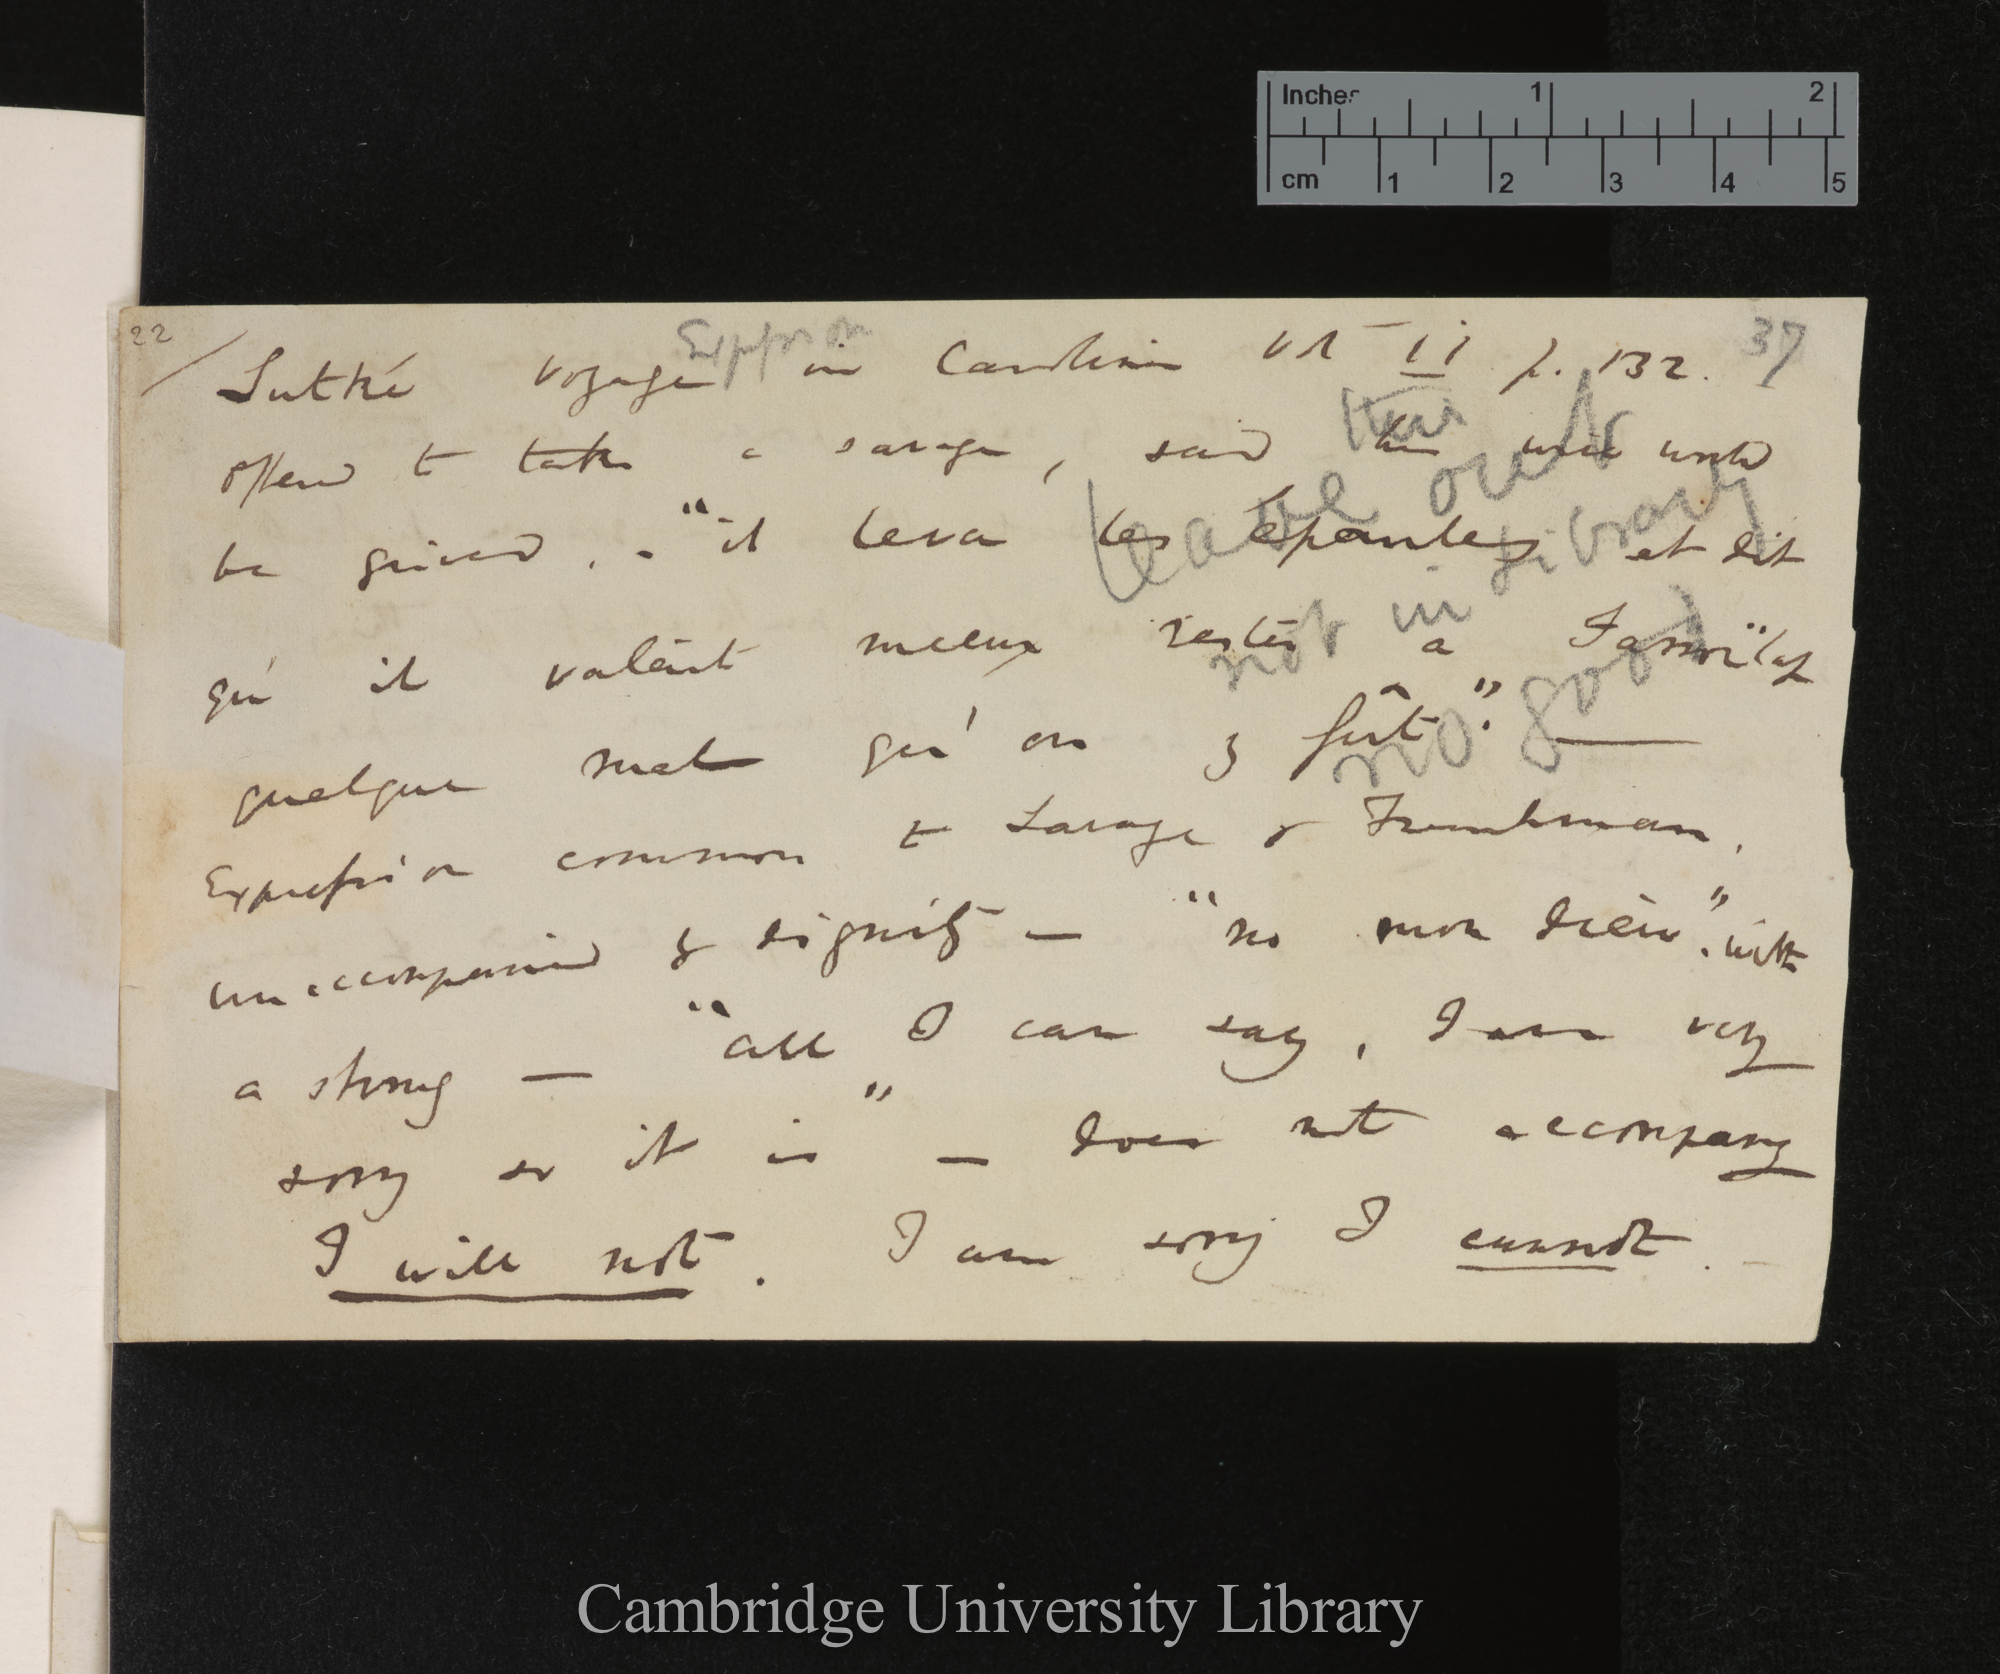 Inches 1 2
cm 1 2 3 4 5
22 Exp͏ression 37
Lutké voyage in Carolin Vol II p. 132.
offered to take a savage, said his wife would
be grieved. - "il leva les épaules et dit
qu' il valait mieux rester a
quelque mal qu' on y fût". —
Expression common to Savage & Frenchman,
unaccompanied by dignity — "no mon dieu". with
a shrug — "all I can say, I am very
sorry so it is" — does not accompany
I will not. I am sorry I cannot.
leave out
not in Library
no good
Cambridge University Library